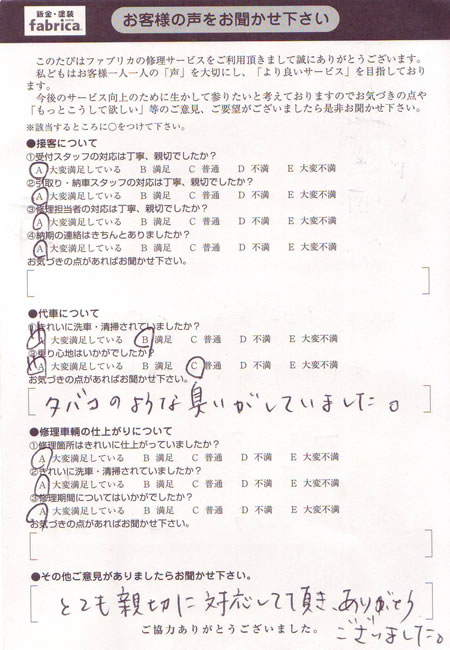 鈑金・塗装
fabrica.
お客様の声をお聞かせ下さい
このたびはファブリカの修理サービスをご利用頂きまして誠にありがとうございます。
私どもはお客様一人一人の「声」を大切にし、「より良いサービス」を目指しており
ます。
今後のサービス向上のために生かして参りたいと考えておりますのでお気づきの点や
「もっとこうして欲しい」等のご意見、ご要望がございましたら是非お聞かせ下さい。
※該当するところに○をつけて下さい。
●接客について
①受付スタッフの対応は丁寧、親切でしたか?
A 大変満足している B 満足 C 普通 D 不満 E 大変不満
②引取り・納車スタッフの対応は丁寧、親切でしたか?
A 大変満足している B 満足 C 普通 D 不満 E 大変不満
③修理担当者の対応は丁寧、親切でしたか?
A 大変満足している B 満足 C 普通 D 不満 E 大変不満
④納期の連絡はきちんとありましたか?
A 大変満足している B 満足 C 普通 D 不満 E 大変不満
お気づきの点があればお聞かせ下さい。
●代車について
①きれいに洗車・清掃されていましたか?
A 大変満足している B 満足 C 普通 D 不満 E 大変不満
②乗り心地はいかがでしたか?
A 大変満足している B 満足 C 普通 D 不満 E 大変不満
お気づきの点があればお聞かせ下さい。
タバコのような臭いがしていました。
●修理車輌の仕上がりについて
①修理箇所はきれいに仕上がっていましたか?
A 大変満足している B 満足 C 普通 D 不満 E 大変不満
②きれいに洗車・清掃されていましたか?
A 大変満足している B 満足 C 普通 D 不満 E 大変不満
③修理期間についてはいかがでしたか?
A 大変満足している B 満足 C 普通 D 不満 E 大変不満
お気づきの点があればお聞かせ下さい。
●その他ご意見がありましたらお聞かせ下さい。
とても親切に対応して頂き、ありがとう
ございました。
ご協力ありがとうございました。